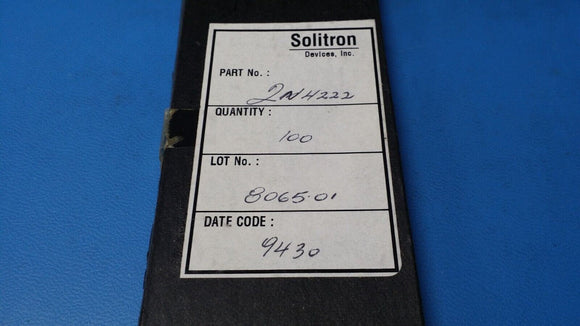 Solitron
Devices, Inc.
PART No. :
2N4222
QUANTITY :
100
LOT No. :
8065-01
DATE CODE :
9430